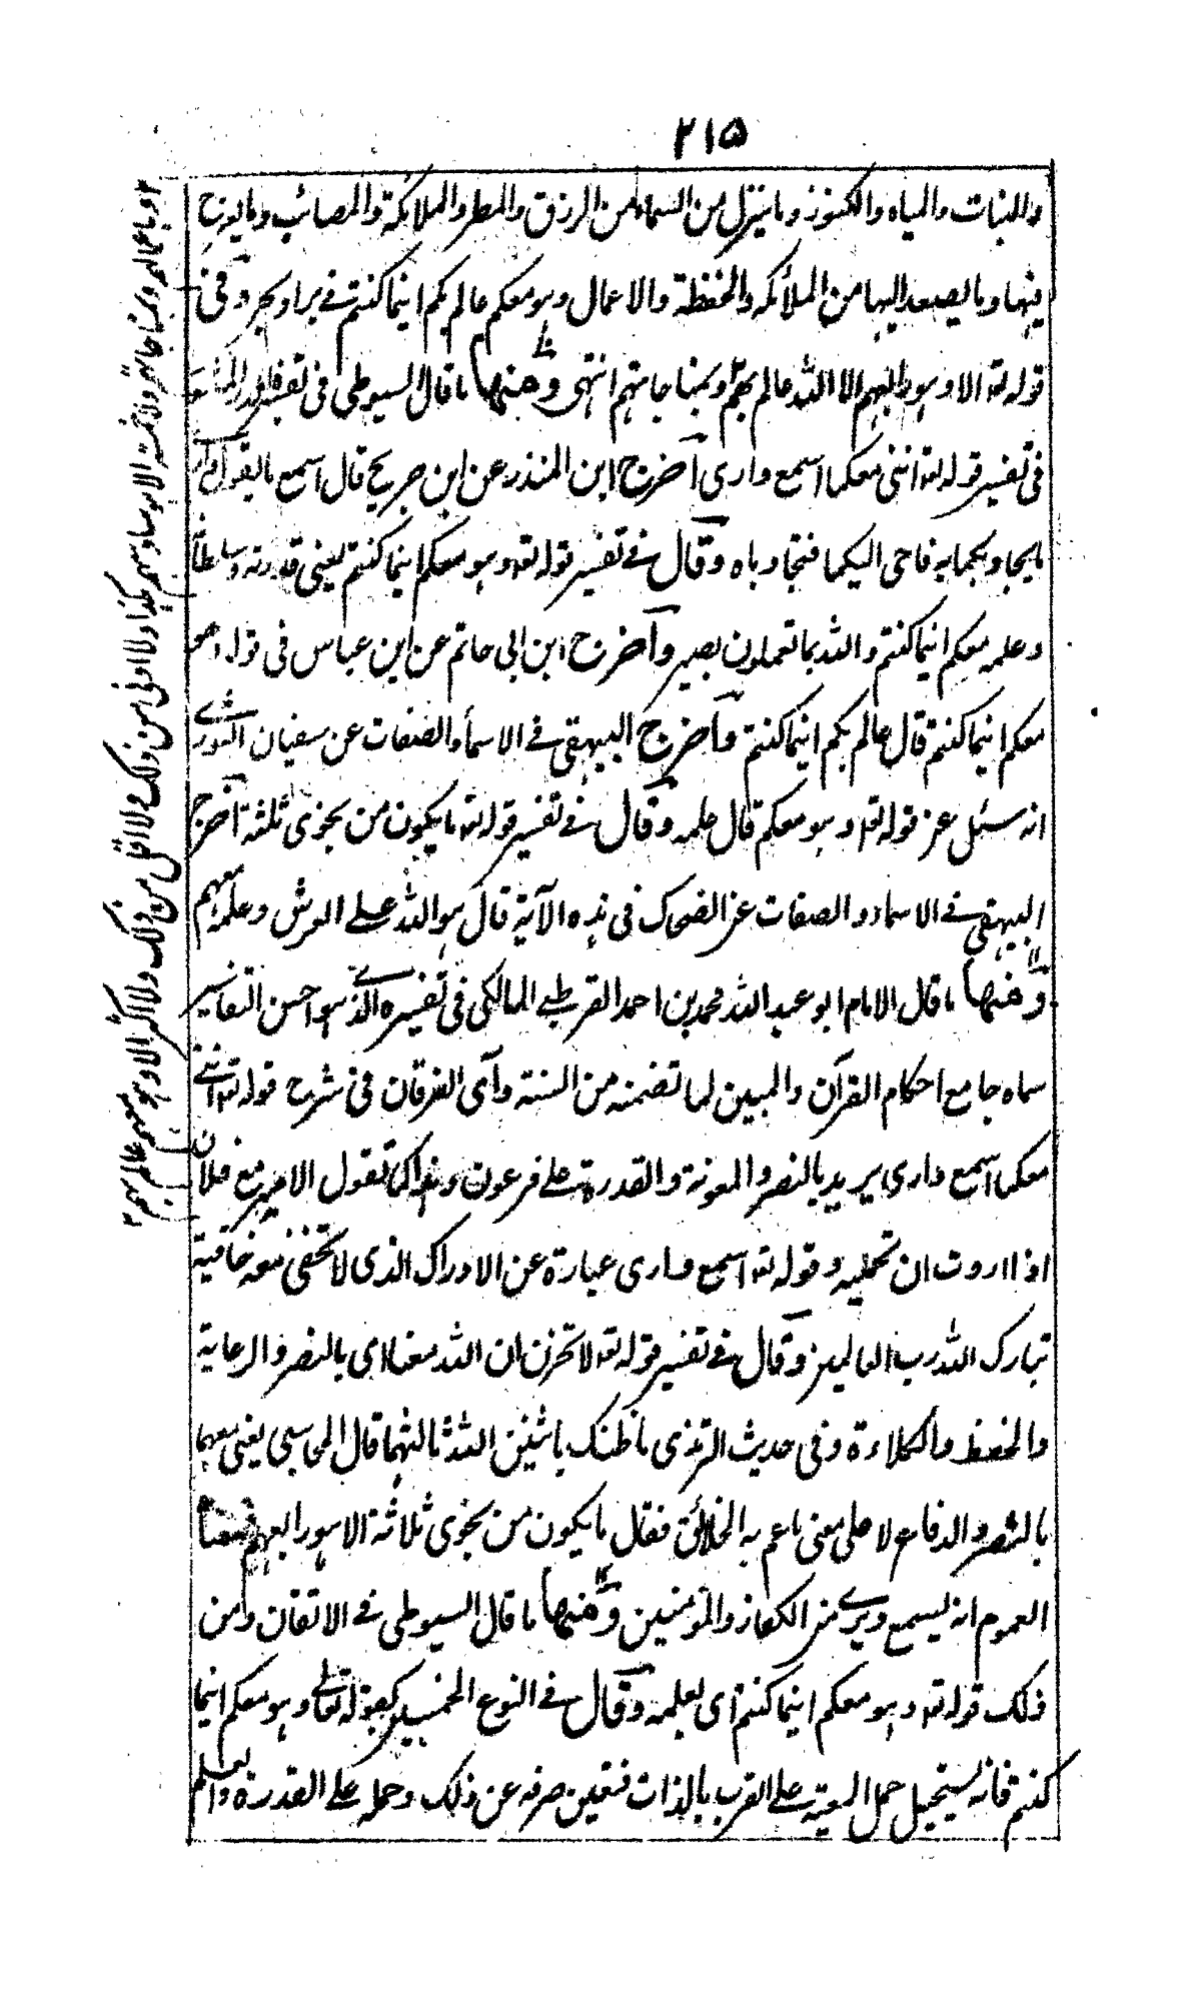 ٢١٥
والنبات والمياه والكنوز وما ينزل من السماء من الرزق والمطر والملائكة والمصائب وما يعرج
فيها وما يصعد اليها من الملائكه والحفظة والاعمال وهو معكم عالم بكم اينما كنتم في بر او بحر وفى
قوله تع الا وهو رابعهم الا الله عالم بهم وبمناجاتهم انتهى ومنها ما قال السيوطى فى تفسيره الدر المنثور
فى تفسير قوله تع اننى معكما اسمع وارى اخرج ابن المنذر عن ابن جريج قال اسمع ما يقول وارى
ما يجاوبكما به فاوحى اليكما فتجاوباه وقال فى تفسير قوله تع وهو معكم اينما كنتم يعنى قدرته وسلطانه
وعلمه معكم اينما كنتم والله بما تعملون بصير واخرج ابن ابى حاتم عن ابن عباس فى قوله وهو
معكم اينما كنتم قال عالم بكم اينما كنتم واخرج البيهقى فى الاسماء والصفات عن سفيان الثورى
انه سئل عن قوله تع وهو معكم قال علمه وقال فى تفسير قوله تع ما يكون من نجوى ثلثة اخرج
البيهقى فى الاسماء والصفات عن الضحاك فى هذه الآية قال هو الله على العرش وعلمه معهم
ومنها ما قال الامام ابو عبد الله محمد بن احمد القرطبى المالكى فى تفسيره الذى هو احسن التفاسير
سماه جامع احكام القرآن والمبين لما تضمنه من السنة وآى الفرقان فى شرح قوله تع اننى
معكما اسمع وارى يريد بالنصر والمعونة والقدرة على فرعون وهذا كما تقول الامير مع فلان
اذا اردت ان تحميه وقوله تع اسمع وارى عبارة عن الادراك الذى لا تخفى معه خافية
تبارك الله رب العالمين وقال فى تفسير قوله تع لا تحزن ان الله معنا اى بالنصر والرعاية
والحفظ والكلاءة وفى حديث الترمذى ما ظنك باثنين الله ثالثهما قال المحاسبى يعنى معهما
بالنصر والدفاع لا على معنى ما عم به الخلائق فقال ما يكون من نجوى ثلاثة الا هو رابعهم فمعناه
العموم انه يسمع ويرى من الكفار والمؤمنين ومنها ما قال السيوطى فى الاتقان ومن
ذلك قوله تع وهو معكم اينما كنتم اى بعلمه وقال فى النوع الخمسين كقوله تعالى وهو معكم اينما
كنتم فانه يستحيل حمل المعية على القرب بالذات فتعين صرفه عن ذلك وحمله على القدرة والعلم
ولا خمسة الا هو سادسهم هكذا ولا ادنى من ذلك ولا اقل من ذلك ولا اكثر الا وهو معهم عالم بهم ١٢